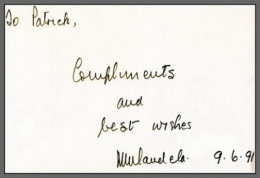 To Patrick,
Compliments
and
best wishes
NMandela. 9.6.91